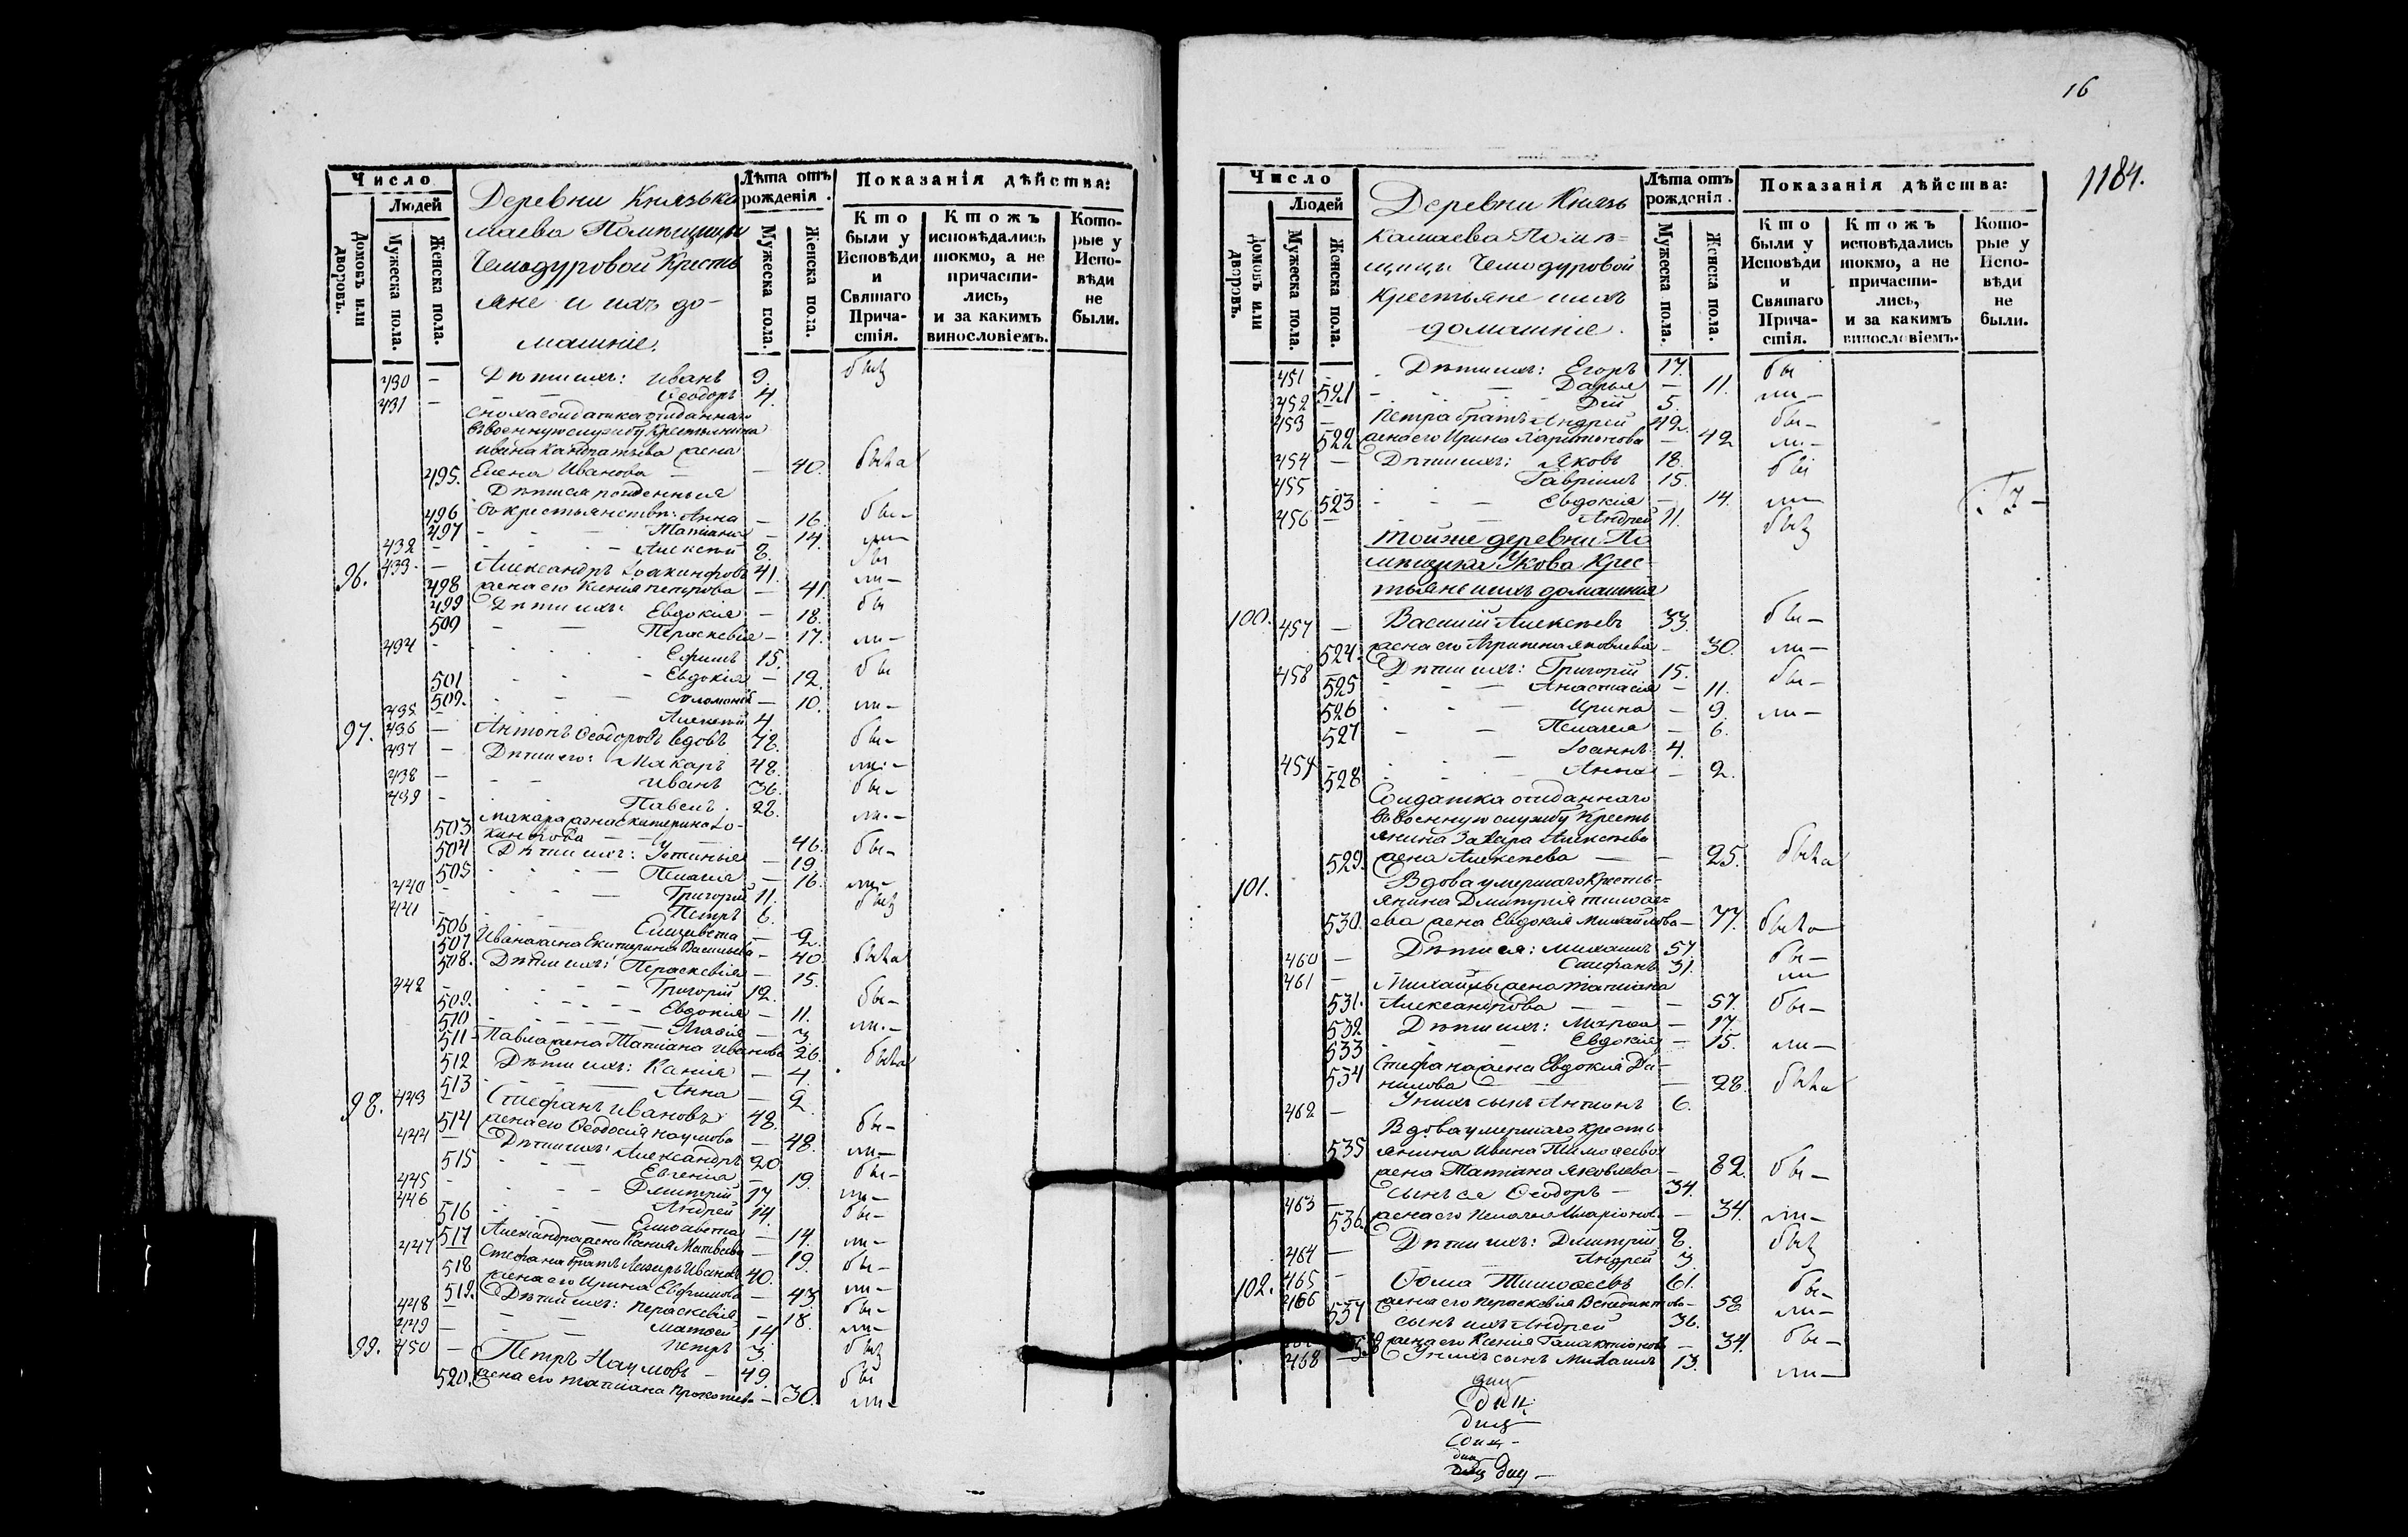 Число
Людей
Домовъ или дворовъ.
Мужеска пола.
Женска пола.
Деревни Князька
маева Помѣщицы
Чемодуровой Кресть
яне и ихъ до-
машніе.
Лѣта отъ рожденія.
Мужеска пола.
Женска пола.
Показанія дѣйства:
Кто были у Исповѣди и Святаго Причастія.
Ктожъ исповѣдались токмо, а не причастились, и за какимъ винословіемъ.
Которые у Исповѣди не были.
430 – Дѣти ихъ: Иванъ 9. бы
431 – Ѳеодоръ 4.
Сноха солдатка отданнаго
въ военную службу Крестьянина
Ивана Кандратьева жена
495. Елена Ивановa – 40. была
Дѣти ея рожденныя
496 въ крестьянствѣ: Анна – 16. бы–
497 Татіана – 14. ли–
432 – Алексѣй 8. бы
96. 433. – Александръ Іоакинфовъ 41. ли–
498 жена его Ксенія Петрова – 41.
499 Дѣти ихъ: Евдокія – 18. бы
500 Параскевія – 17. ли–
434 – Ефимъ 15.
501 Евдокія – 12. бы
502. Соломонія – 10. ли–
435 Алексѣй 4.
97. 436 – Антонъ Ѳеодоровъ вдовъ 78. бы–
437 – Дѣти его: Макаръ 48. ли–
438 – Иванъ 36. бы–
439 – Павелъ 28. ли–
503 Макара жена Екатерина Іо-
кинфова 46. бы–
504 Дѣти ихъ: Устинья – 19.
505 Пелагея – 16. ли–
440 – Григорій 11. бы
441 – Петръ 6.
506 Елизавета – 2.
507 Ивана жена Екатерина Васильева – 40. была
508. Дѣти ихъ: Параскевія – 15.
442 – Григорій 12. бы–
509. Евдокія – 11.
510 Агафія – 3. ли–
511 Павла жена Татіана Иванова 26. была
512 Дѣти ихъ: Ксенія – 4.
513 Анна – 2.
98. 443 – Стефанъ Ивановъ 48. бы–
514 жена его Ѳеодосія Наумова – 48. ли–
444 – Дѣти ихъ: Александръ 20. бы–
515 Евгенія – 19. ли–
445 – Дмитрій 17. бы–
446 Андрей 14.
516 Елисавета – 14. ли–
517 Александра жена Ксенія Матвеева – 19. бы–
447 – Стефана братъ Лазарь Ивановъ 40. ли–
518 жена его Ирина Ефимова – 43. бы–
519. Дѣти ихъ: Параскевія – 18. ли–
448 – Матѳей 14. бы
449 – Петръ 3.
99. 450 – Петръ Наумовъ – 49. бы
520. жена его Татіана Прокопьева – 30. ли–
16
1184.
Число
Людей
Домовъ или дворовъ.
Мужеска пола.
Женска пола.
Деревни Князь
камаева Помѣ=
щицы Чемодуровой
Крестьяне и ихъ
домашніе.
Лѣта отъ рожденія.
Мужеска пола.
Женска пола.
Показанія дѣйства:
Кто были у Исповѣди и Святаго Причастія.
Ктожъ исповѣдались токмо, а не причастились, и за какимъ винословіемъ.
Которые у Исповѣди не были.
451 – Дѣти ихъ: Егоръ 17. бы
521 Дарья – 11. ли–
452 – Дій 5.
453 – Петра братъ Андрей 42. бы–
522 жена его Ирина Харитонова – 42 ли–
454 – Дѣти ихъ: Яковъ 18. бы
455 Гавріилъ 15.
523 Евдокія – 14. ли–
456 – Андрей 11. бы
Тойже деревни По
мѣщика Укова Крес
тьяне и ихъ домашнія
100. 457 – Василій Алексѣевъ 33. бы–
524. жена его Агрипина Яковлева – 30. ли–
458 – Дѣти ихъ: Григорій 15. бы–
525 Анастасія – 11.
526 Ирина – 9. ли–
527 Пелагея – 6.
459 – Іоаннъ 4.
528 Анна – 2.
Солдатка отданнаго
въ военную службу Кресть
янина Захара Алексѣева
529. жена Алексѣева – 25. была
101. Вдова умершаго Кресть-
янина Дмитрія Тимоѳе=
530. ева жена Евдокія Михайлова – 77. была
460 – Дѣти ея: Михаилъ 57. бы–
461 – Стефанъ 31. ли
Михайлы жена Татіана
531. Александрова – 57. бы–
532 Дѣти ихъ: Марѳа – 17.
533 Евдокія – 15. ли–
534 Стефана жена Евдокія Да-
нилова – 28. была
462 – У нихъ сынъ Антонъ 6.
Вдова умершаго кресть-
535 янина Ивана Тимоѳеева
жена Татіана Яковлева – 82. бы–
463 – сынъ ея Ѳеодоръ – 34.
536. жена его Пелагея Иларіонова – 34. ли–
464 – Дѣти ихъ: Дмитрій 8. бы
465 – Андрей 3
102. 466 Ѳома Тимоѳеевъ 61. бы–
537 жена его Параскевія Венедиктова – 58. ли–
сынъ ихъ Андрей 36.
538 жена его Ксенія Галактіонова – 34. бы–
468 – У нихъ сынъ Михаилъ 13. ли–